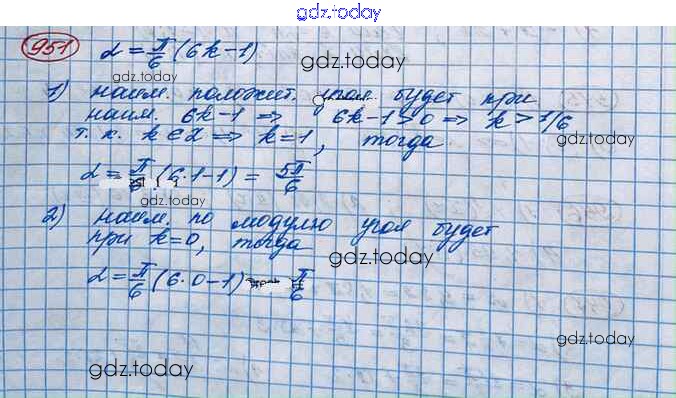 gdz.today
951 α = π/6 (6k-1) gdz.today
gdz.today
1) наим. положит. угол будет при
наим. 6k-1 => 6k-1>0 => k > 1/6
т. к. k ∈ Z => k=1, тогда
gdz.today
α = π/6 (6·1-1) = 5π/6
gdz.today
2) наим. по модулю угол будет
при k=0, тогда
gdz.today
α = π/6 (6·0-1) π/6
gdz.today
gdz.today